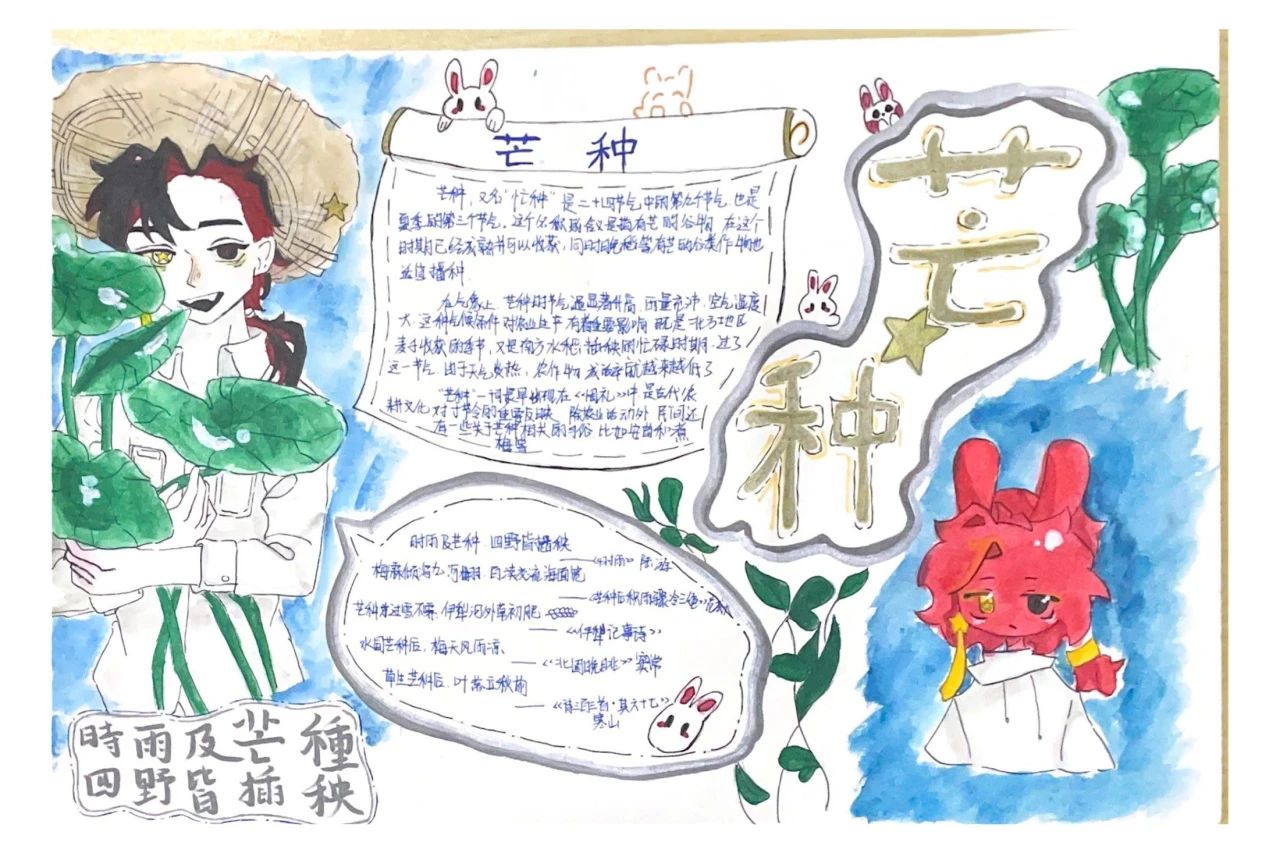 芒种
芒种，又名“忙种”是二十四节气中的第九个节气，也是
夏季的第三个节气。这个名称的含义是指有芒的谷物，在这个
时期已经成熟并可以收获，同时晚稻等有芒的谷类作物也
适宜播种
在气象上，芒种时节气温显著升高，雨量充沛，空气湿度
大，这种气候条件对农业生产有着重要影响，既是北方地区
麦子收获的季节，又是南方水稻插秧的忙碌时期，过了
这一节气，由于天气炎热，农作物成活率就越来越低了
“芒种”一词最早出现在《周礼》中是古代农
耕文化对于节令的重要反映 除农业活动外，民间还
有一些关于芒种相关的习俗 比如安苗和煮
梅等
芒
种
时雨及芒种，四野皆插秧
——《时雨》陆游
梅霖倾泻九河翻，百渎交流海面宽
——《芒种后积雨骤冷三绝》范成大
芒种才过雪不霁，伊犁河外草初肥
——《伊犁记事诗》
水国芒种后，梅天风雨凉
——《北固晚眺》窦常
草生芒种后，叶落立秋前
寒山
時雨及芒種
四野皆插秧